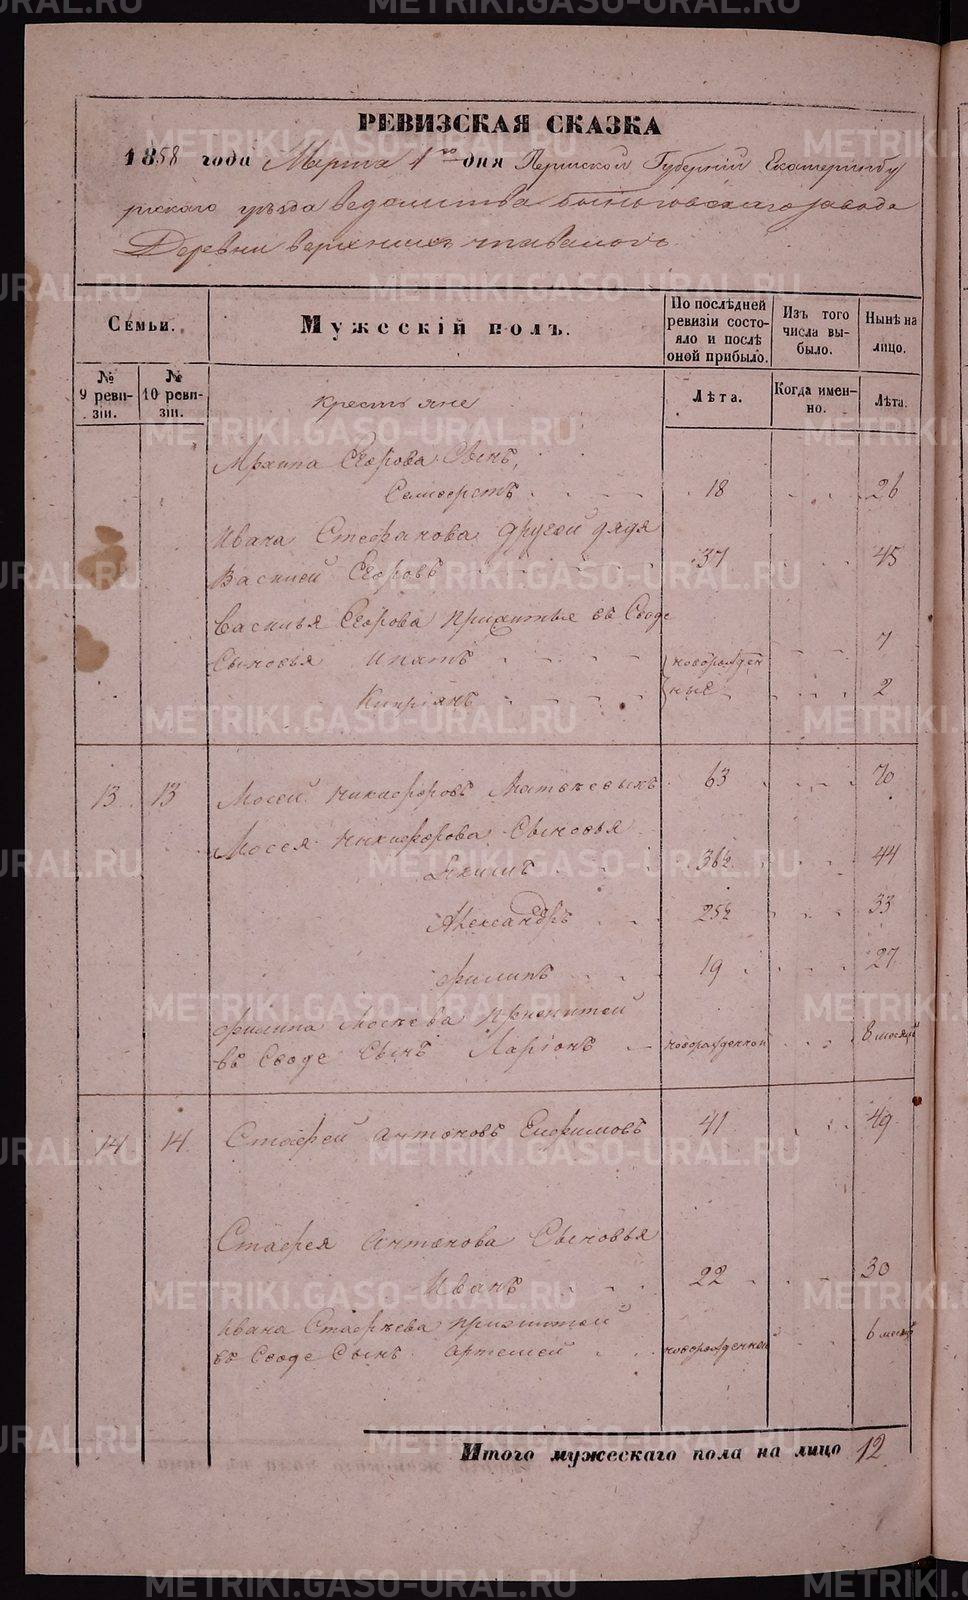 РЕВИЗСКАЯ СКАЗКА
1858 года Марта 1го дня Пермской Губернiи Екатеринбу
ргскаго уѣзда ведомства Быньговскаго завода
Деревни верхнихъ
Семьи.
Мужескiй полъ.
По послѣдней ревизiи состояло и послѣ оной прибыло.
Изъ того числа выбыло.
Нынѣ на лицо.
№ 9 ревизiи.
№ 10 ревизiи.
Лѣта.
Когда именно.
Лѣта.
крестьяне
Архипа Сидрова Сынъ,
Селиверстъ 18 26
Ивана Стефанова другой дядя
Василей Сидровъ 37 45
Василья Сидрова прижитые въ Сводe
Сыновья Ипатъ новорожден 7
Кипрiянъ ные 2
13 13 Мосей Никифоровъ 63 70
Мосея Никифорова Сыновья
Екимъ 36½ 44
Александръ 25½ 33
Филипъ 19 27
Филипа Мосѣева прижитой
въ Сводe Сынъ Ларiонъ новорожденной 8 месяцъ
14 14 Стафей Антоновъ Ефимовъ 41 49
Стафея Антонова Сыновья
Иванъ 22 30
Ивана Стафѣева прижитой
въ Сводe Сынъ Артемей новорожденной 6 месяц
Итого мужескаго пола на лицо 12
METRIKI.GASO-URAL.RU